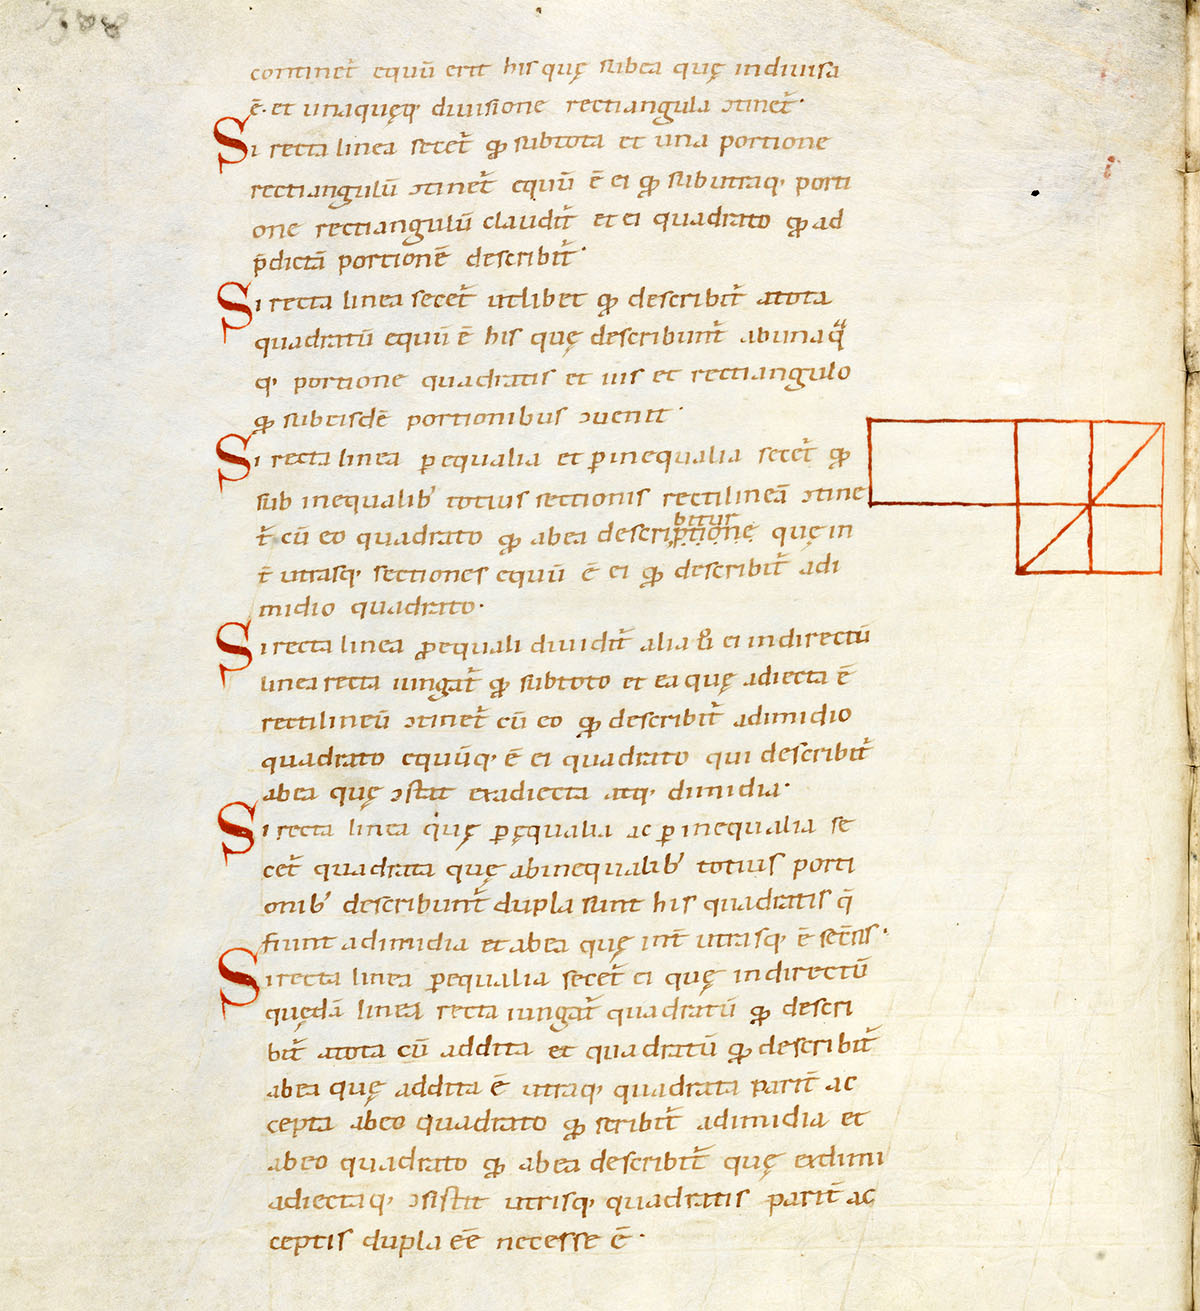 continet̄ equū erit his quę subea quę indiuisa
ē· et unaquęq; diuisione rectiangula ɔtinet̄·
Si recta linea secet̄ qđ subtota et una portione
rectiangulū ɔtinet̄ equū ē ei qđ subutraq; porti
one rectiangulū claudit̄ et ei quadrato qđ ad
p̄dictā portionē describit̄·
Si recta linea secet̄ utlibet qđ describit̄ atota
quadratū equū ē his quę describunt̄ abunaq
q; portione quadratis et iis et rectiangulo
qđ subeisdē portionibus ɔuenit·
Si recta linea ꝑ equalia et ꝑ inequalia secet̄ qđ
sub inequalib' totius sectionis rectilineā ɔtine
t̄ cū eo quadrato qđ abea descriptione quę in
bitur
t̄ utrasq; sectiones equū ē ei qđ describit̄ adi
midio quadrato·
Si recta linea ꝑequali diuidit̄ alia ū ei indirectū
linea recta iungat̄ qđ subtoto et ea quę adiecta ē
rectilineū ɔtinet̄ cū eo qđ describit̄ adimidio
quadrato equūq; ē ei quadrato qui describit̄
abea quę ɔstat exadiecta atq; dimidia·
Si recta linea quę ꝑ ęqualia ac ꝑ inequalia se
cet̄ quadrata quę abinequalib' totius porti
onib' describunt̄ dupla sunt his quadratis q̄
fiunt adimidia et abea quę int̄ utrasq; ē
Si recta linea ꝑequalia secet̄ ei quę indirectū
quędā linea recta iungat̄ quadratū qđ descri
bit̄ atota cū addita et quadratū qđ describit̄
abea quę addita ē utraq; quadrata parit̄ ac
cepta abeo quadrato qđ scribit̄ adimidia et
abeo quadrato qđ abea describit̄ quę exdimi
adiectaq; ɔsistit utrisq; quadratis parit̄ ac
ceptis dupla eē necesse ē·